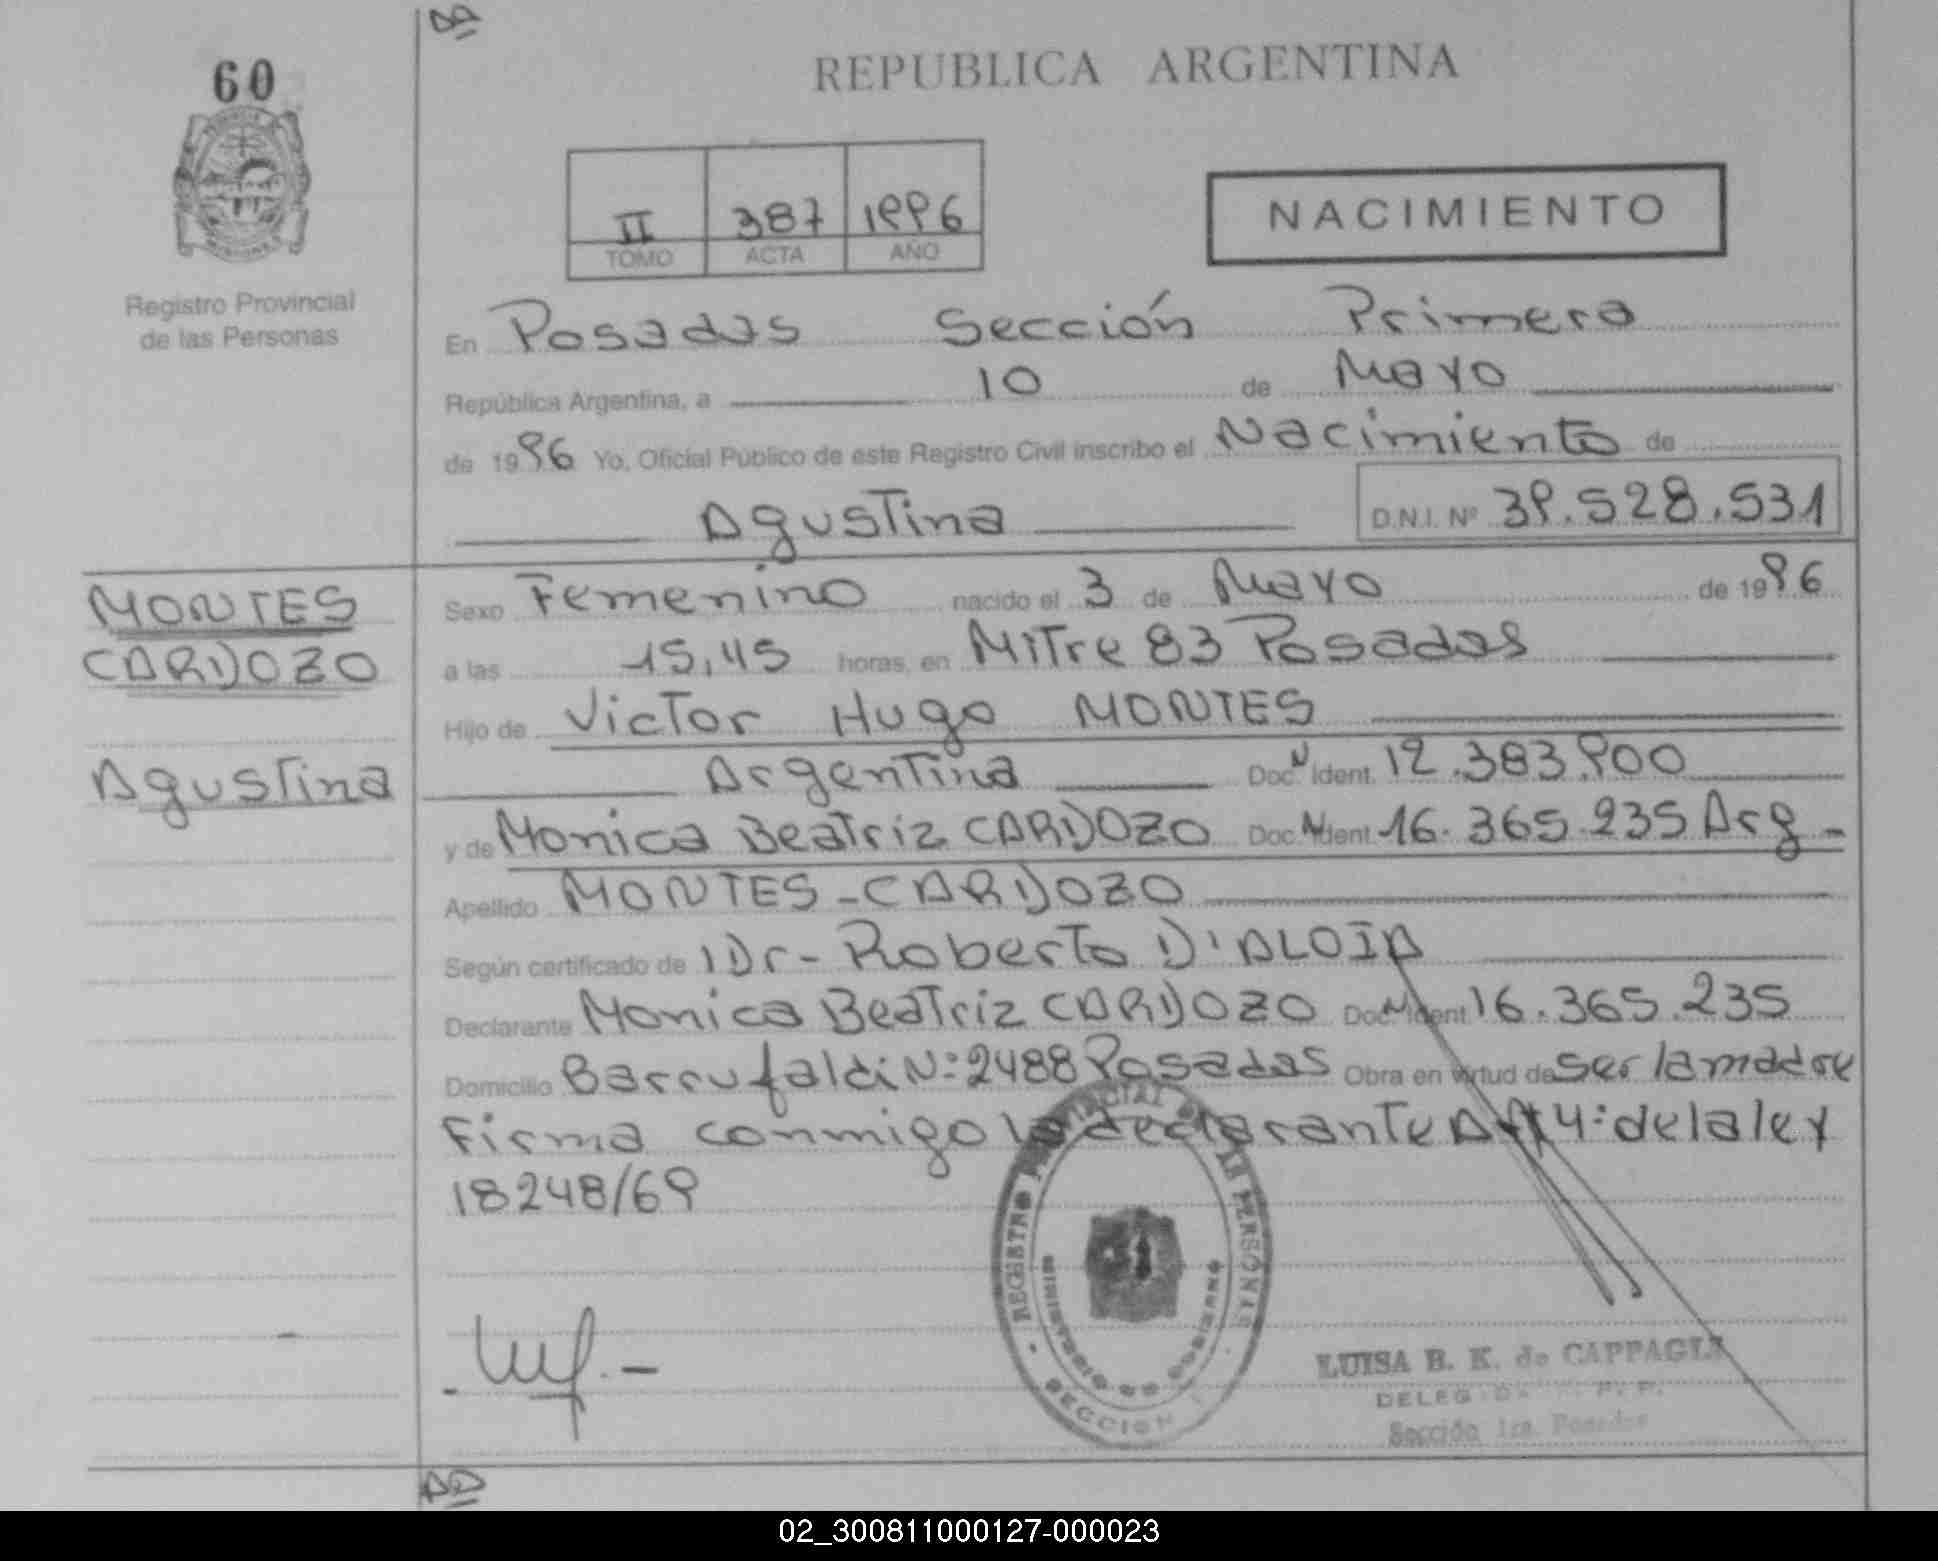 60
REPUBLICA ARGENTINA
II 387 1996
TOMO ACTA AÑO
NACIMIENTO
Registro Provincial
de las Personas
En Posadas Sección Primera
República Argentina, a 10 de Mayo
de 1996 Yo, Oficial Público de este Registro Civil inscribo el Nacimiento de
Agustina D.N.I. Nº 39.528.531
MONTES
CARDOZO
Agustina
Sexo Femenino nacido el 3 de Mayo de 1996
a las 15,45 horas, en Mitre 83 Posadas
Hijo de Victor Hugo MONTES
Argentina Doc. N Ident. 12.383.900
y de Monica Beatriz CARDOZO Doc. N Ident. 16.365.235 Arg -
Apellido MONTES - CARDOZO
Según certificado de Dr - Roberto D'ALOIA
Declarante Monica Beatriz CARDOZO Doc. N Ident 16.365.235
Domicilio Barrufaldi N: 2488 Posadas Obra en virtud de ser la madre
Firma conmigo la declarante Art 4: de la ley
18248/69
REGISTRO PROVINCIAL DE LAS PERSONAS
MINISTERIO DE GOBIERNO
SECCION
LUISA B. K. de CAPPAGLI
Sección 1ra. Posadas
02_300811000127-000023